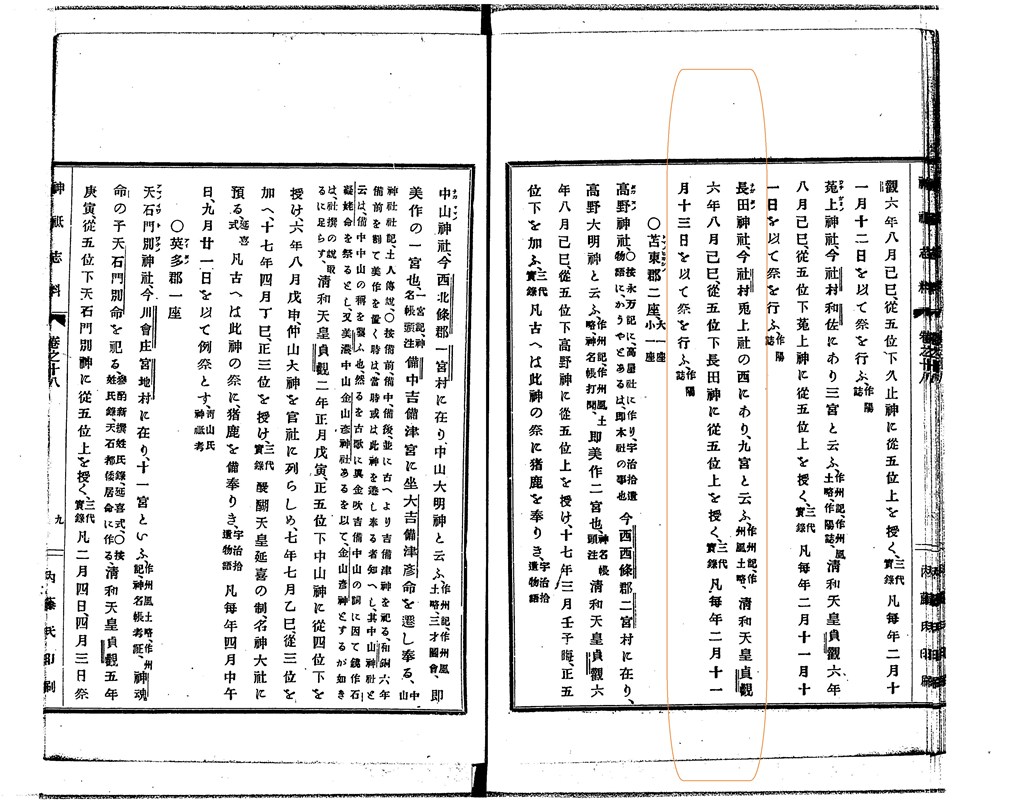 觀六年八月己巳、從五位下久止神に從五位上を授く、三代實錄 凡毎年二月十
一月十二日を以て祭を行ふ、作陽誌
菟上神社、今社村和佐にあり三宮と云ふ、作州記、作州風土略、作陽誌、 清和天皇貞觀六年
八月己巳、從五位下菟上神に從五位上を授く、三代實錄 凡毎年二月十一月十
一日を以て祭を行ふ、作陽誌
長田神社、今社村兎上社の西にあり、九宮と云ふ、作州記、作州風土略、 清和天皇貞觀
六年八月己巳、從五位下長田神に從五位上を授く、三代實錄 凡毎年二月十一
月十三日を以て祭を行ふ、作陽誌
〇苫東郡二座、大一座小一座
高野神社、〇按永万記に、高屋社に作り、宇治拾遺物語に、かうやとあるは、即本社の事也 今西西條郡二宮村に在り、
高野大明神と云ふ、作州記、作州風土略、神名帳打聞、 即美作二宮也、神名帳頭注 清和天皇貞觀六
年八月己巳、從五位下高野神に從五位上を授け、十七年三月壬子晦、正五
位下を加ふ、三代實錄 凡古へは此神の祭に猪鹿を奉りき、宇治拾遺物語
中山神社、今西北條郡一宮村に在り、中山大明神と云ふ、作州記、作州風土略、三才圖會、 即
美作の一宮也、一宮記、神名帳頭注 備中吉備津宮に坐大吉備津彥命を遷し奉る、中山
神社社記、土人傳說〇按備前、備中備後、並に古へより吉備津神を祀る、和銅六年
備前を割て美作を置く時は、當時或は此神を遷し奉る者知へし、其中山神社と
云は、備中中山の稱を襲ふ也、然るを古歌に眞金吹吉備中山の詞に因て鏡作石
凝姥命を祭るとし、又美濃中山金山彥神社あるを以て、金山彥神とするが如き
は、社撰の說取るに足らず、 清和天皇貞觀二年正月戊寅、正五位下中山神に從四位下を
授け、六年八月戊申仲山大神を官社に列らしめ、七年七月乙巳從三位を
加へ、十七年四月丁巳、正三位を授け、三代實錄 醍醐天皇延喜の制、名神大社に
預る、延喜式 凡古へは此神の祭に猪鹿を備奉りき、宇治拾遺物語 凡毎年四月中午
日、九月廿一日を以て例祭とす、河山氏神祗考
〇英多郡一座
天石門別神社、今川會庄宮地村に在り、十一宮といふ、作州風土略、作州記、神名帳考証、 神魂
命の子天石門別命を祀る、參酌新撰姓氏錄、延喜式、〇按姓氏錄、天石都倭居命に作る、 清和天皇貞觀五年
庚寅、從五位下天石門別神に從五位上を授く、三代實錄 凡二月四日、四月三日祭
神祗志料 卷之十八 九 內藤氏印刷